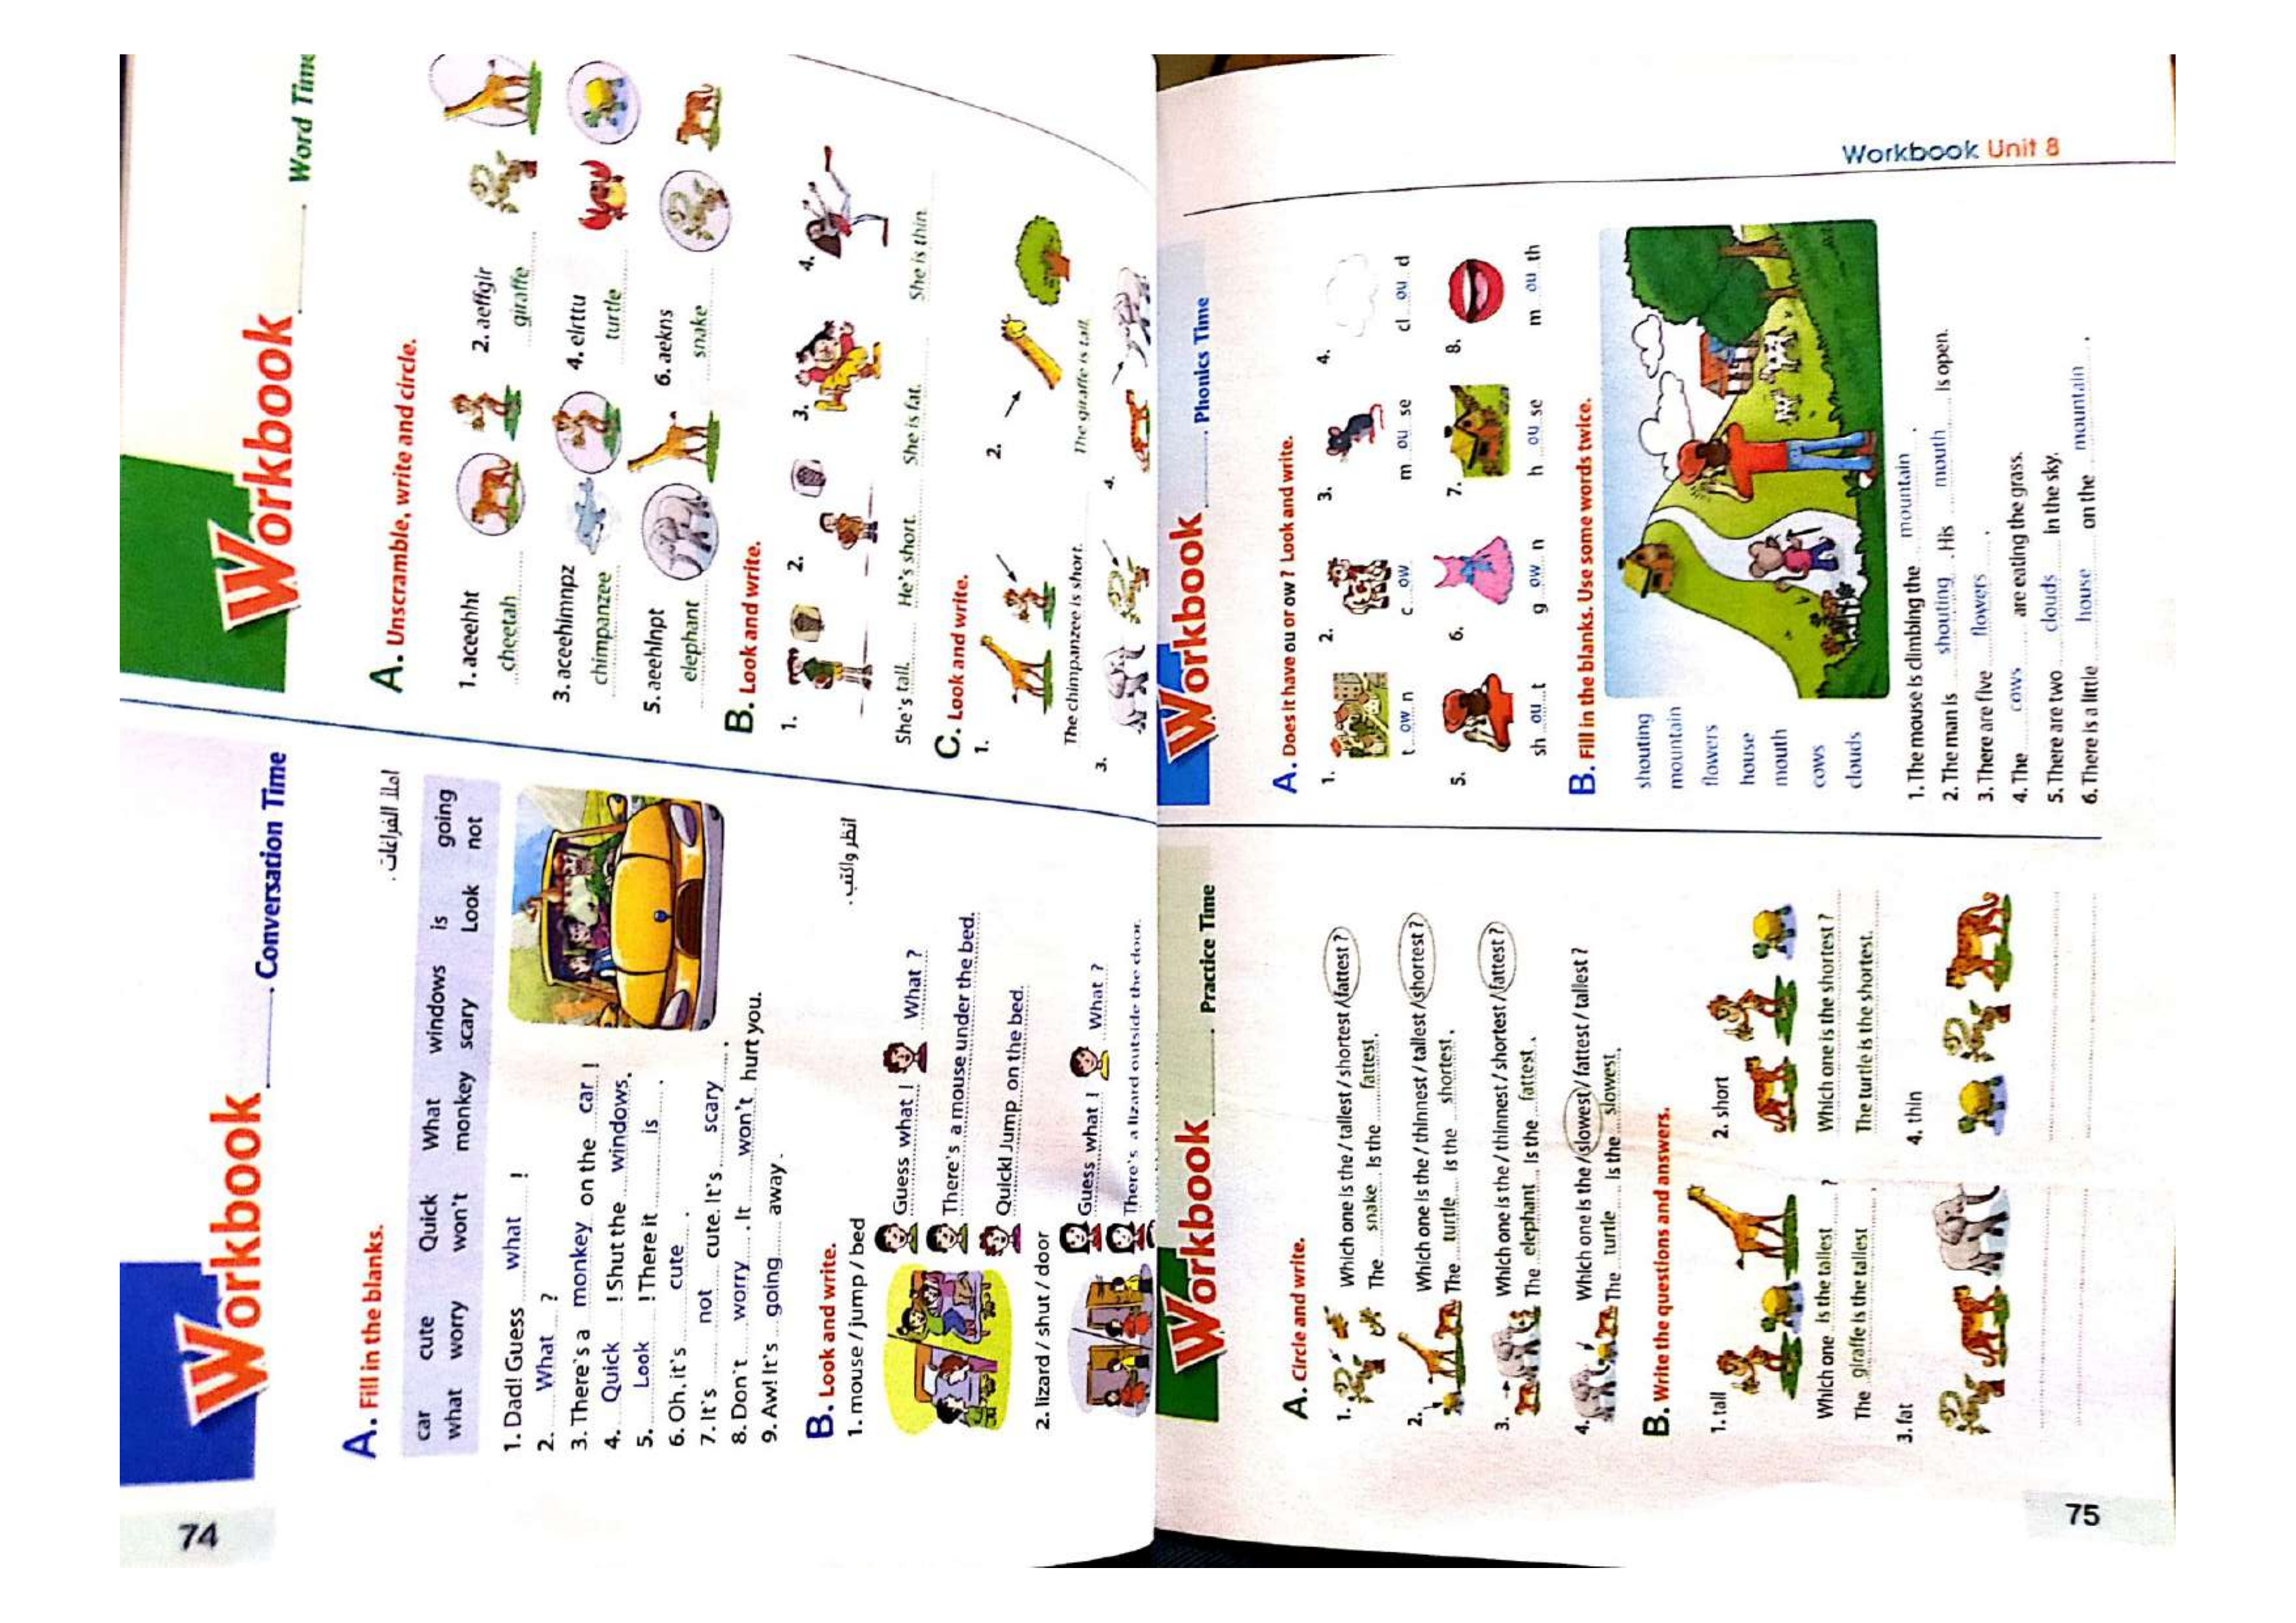 74
Workbook
Conversation Time
A. Fill in the blanks.
املأ الفراغات .
car cute Quick What windows is going
what worry won't monkey scary Look not
1. Dad! Guess what !
2. What ?
3. There's a monkey on the car !
4. Quick ! Shut the windows.
5. Look ! There it is .
6. Oh, it's cute .
7. It's not cute. It's scary .
8. Don't worry . It won't hurt you.
9. Aw! It's going away .
B. Look and write.
انظر واكتب .
1. mouse / jump / bed
Guess what ! What ?
There's a mouse under the bed.
Quick! Jump on the bed.
2. lizard / shut / door
Guess what ! What ?
There's a lizard outside the door.
Workbook
Word Time
A. Unscramble, write and circle.
1. aceehht
cheetah
2. aeffgir
giraffe
3. aceehimnpz
chimpanzee
4. elrttu
turtle
5. aeehlnpt
elephant
6. aekns
snake
B. Look and write.
1. 2. 3. 4.
She's tall. He's short. She is fat. She is thin.
C. Look and write.
1. 2.
The chimpanzee is short. The giraffe is tall.
3. 4.
Workbook
Practice Time
A. Circle and write.
1. Which one is the / tallest / shortest / fattest ?
The snake is the fattest .
2. Which one is the / thinnest / tallest / shortest ?
The turtle is the shortest .
3. Which one is the / thinnest / shortest / fattest ?
The elephant is the fattest .
4. Which one is the / slowest / fattest / tallest ?
The turtle is the slowest .
B. Write the questions and answers.
1. tall 2. short
Which one is the tallest ? Which one is the shortest ?
The giraffe is the tallest . The turtle is the shortest.
3. fat 4. thin
75
Workbook
Phonics Time
A. Does it have ou or ow ? Look and write.
1. 2. 3. 4.
t ow n c ow m ou se cl ou d
5. 6. 7. 8.
sh ou t g ow n h ou se m ou th
B. Fill in the blanks. Use some words twice.
shouting
mountain
flowers
house
mouth
cows
clouds
1. The mouse is climbing the mountain .
2. The man is shouting . His mouth is open.
3. There are five flowers .
4. The cows are eating the grass.
5. There are two clouds in the sky.
6. There is a little house on the mountain .
Workbook Unit 8